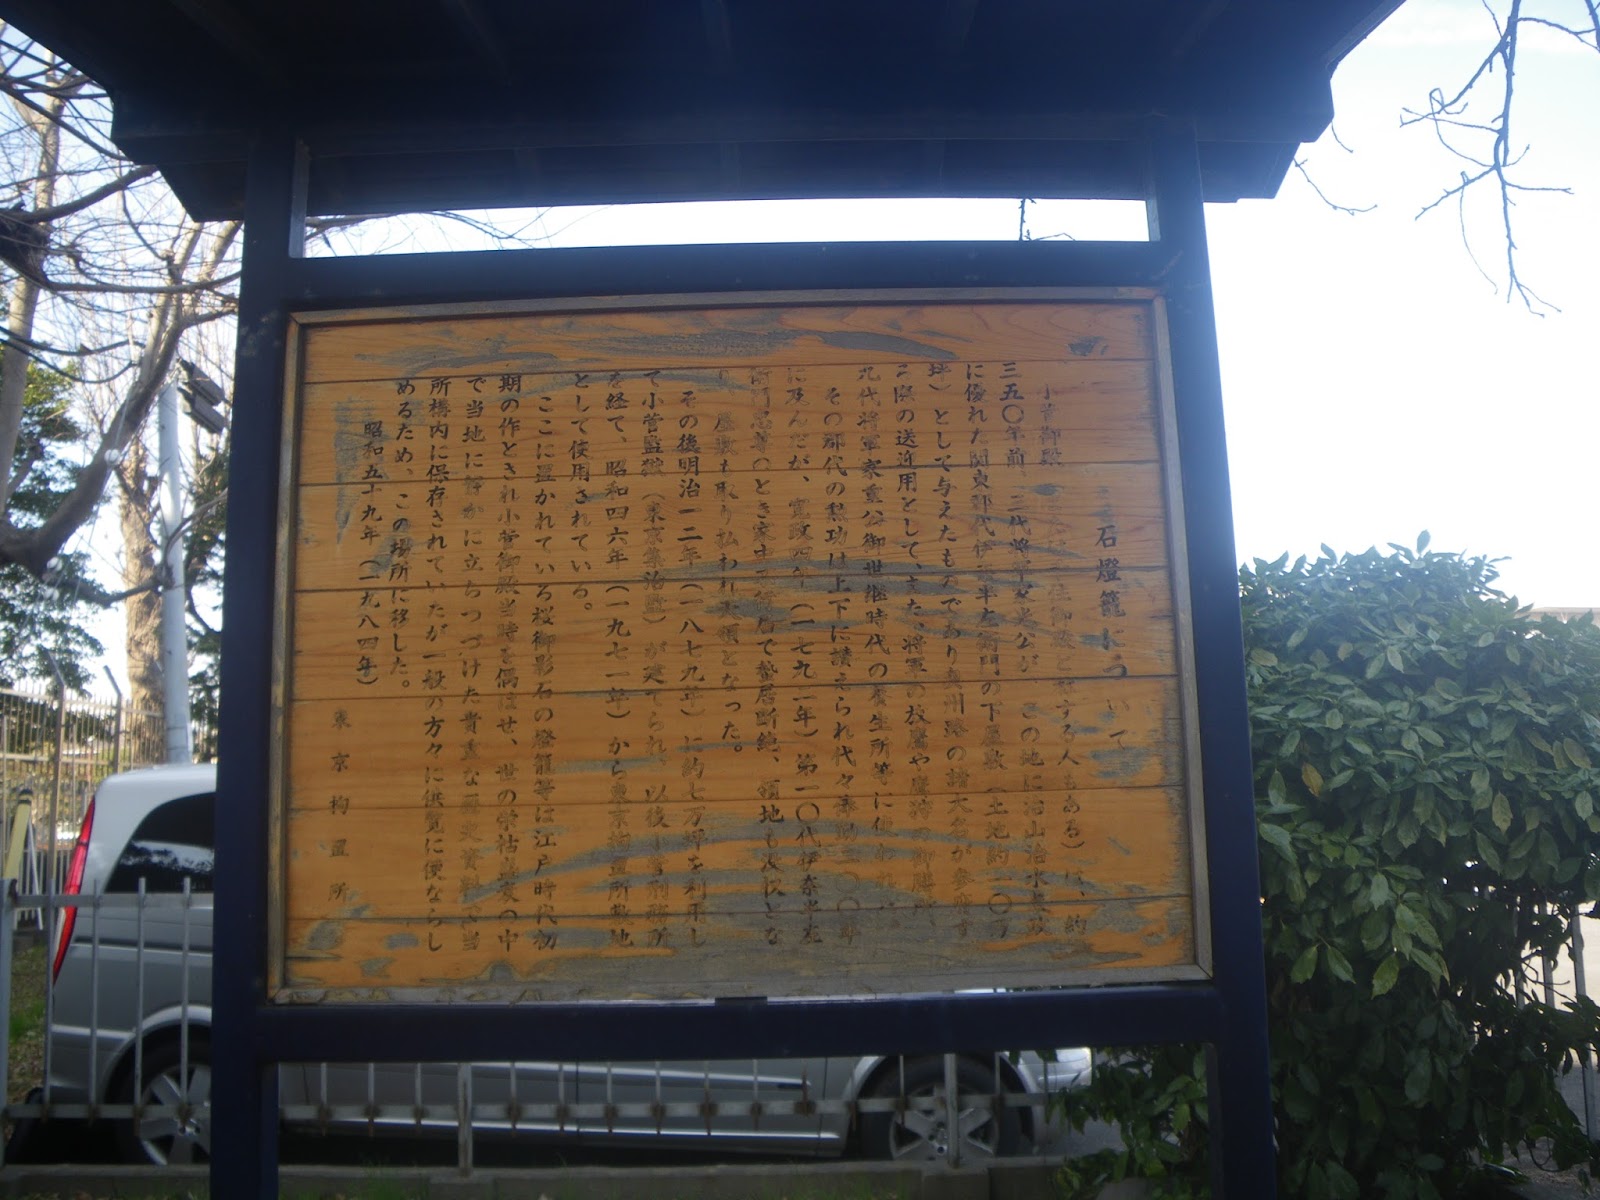 石燈籠について
小菅御殿 千住御殿と称する人もある)は、約
三五〇年前、三代将軍家光公が、この地に治山治水
に優れた関東郡代伊奈半左衛門の下屋敷(土地約一〇万
坪)として与えたものであり奥州路の諸大名が参府す
際の送迎用として、また、将軍の放鷹や鷹狩の御膳所、
九代将軍家重公御世継時代の養生所等に使われ
その郡代の勲功は上下に讃えられ代々 〇
に及んだが、寛政四年(一七九二年)第一〇代伊奈半左
衛門忠尊のとき家中 で蟄居断絶、領地も没収とな
り、屋敷も取り払われ天領となった。
その後明治一二年(一八七九年)に約七万坪を利用し
て小菅監獄(東京集治監)が建てられ、以後小菅刑務所
を経て、昭和四六年(一九七一年)から東京拘置所敷地
として使用されている。
ここに置かれている桜御影石の燈籠等は江戸時代初
期の作とされ小菅御殿当時を偶ばせ、世の栄枯盛衰の中
で当地に静かに立ちつづけた貴重な歴史資料で当
所構内に保存されていたが一般の方々に供覧に便ならし
めるため、この場所に移した。
昭和五十九年(一九八四年)
東京拘置所